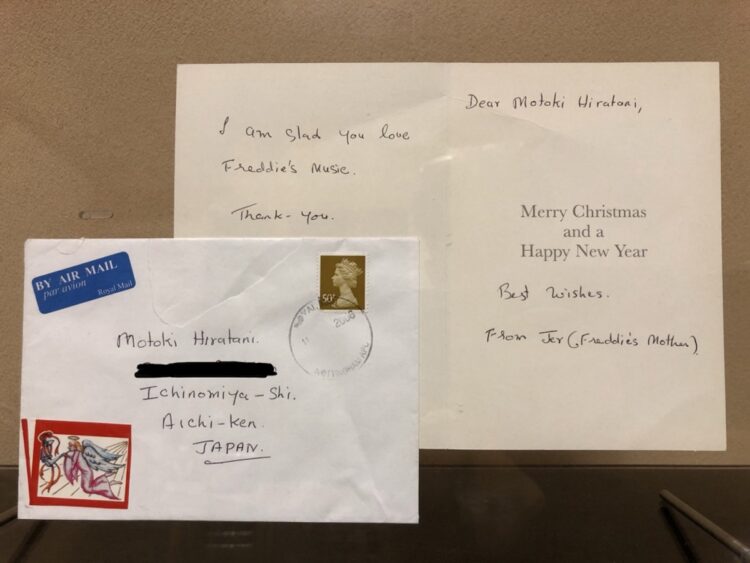 I am glad you love
Freddie's Music.
Thank-you.
Dear Motoki Hiratani,
Merry Christmas
and a
Happy New Year
Best Wishes.
From Jer (Freddie's Mother)
BY AIR MAIL
par avion
Royal Mail
50P
2006
Motoki Hiratani.
Ichinomiya-Shi.
Aichi-Ken.
JAPAN.